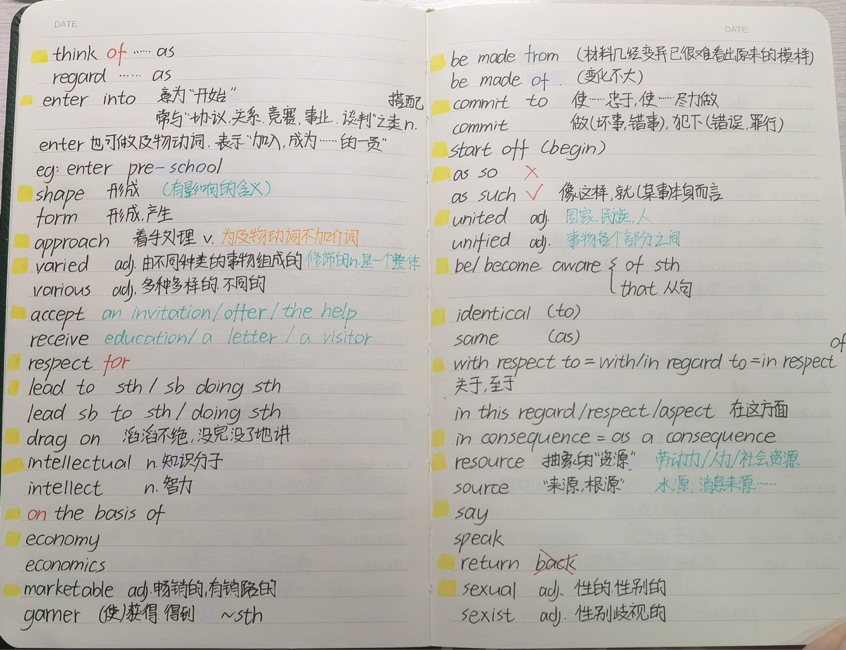 DATE:
think of ······ as
regard ······ as
enter into 意为"开始" 搭配
常与"协议、关系、竞赛、事业、谈判"之类n.
enter也可做及物动词,表示"加入,成为······的一员"
eg: enter pre-school
shape 形成 (有影响的含义)
form 形成,产生
approach 着手处理 v. 为及物动词不加介词
varied adj. 由不同种类的事物组成的 修饰的n.是一个整体
various adj. 多种多样的,不同的
accept an invitation/offer/the help
receive education/a letter/a visitor
respect for
lead to sth/sb doing sth
lead sb to sth/doing sth
drag on 滔滔不绝,没完没了地讲
intellectual n. 知识分子
intellect n. 智力
on the basis of
economy
economics
marketable adj. 畅销的,有销路的
garner (使)获得,得到 ~sth
DATE:
be made from (材料几经变异已很难看出原来的模样)
be made of (变化不大)
commit to 使······忠于,使······尽力做
commit 做(坏事,错事),犯下(错误,罪行)
start off (begin)
as so ×
as such ✓ 像这样,就(某事)本身而言
united adj. 国家,民族,人
unified adj. 事物各个部分之间
be/become aware { of sth
that 从句
identical (to)
same (as)
with respect to = with/in regard to = in respect of
关于,至于
in this regard/respect/aspect 在这方面
in consequence = as a consequence
resource 抽象的"资源" 劳动力/人力/社会资源
source "来源,根源" 水源,消息来源······
say
speak
return back
sexual adj. 性的,性别的
sexist adj. 性别歧视的